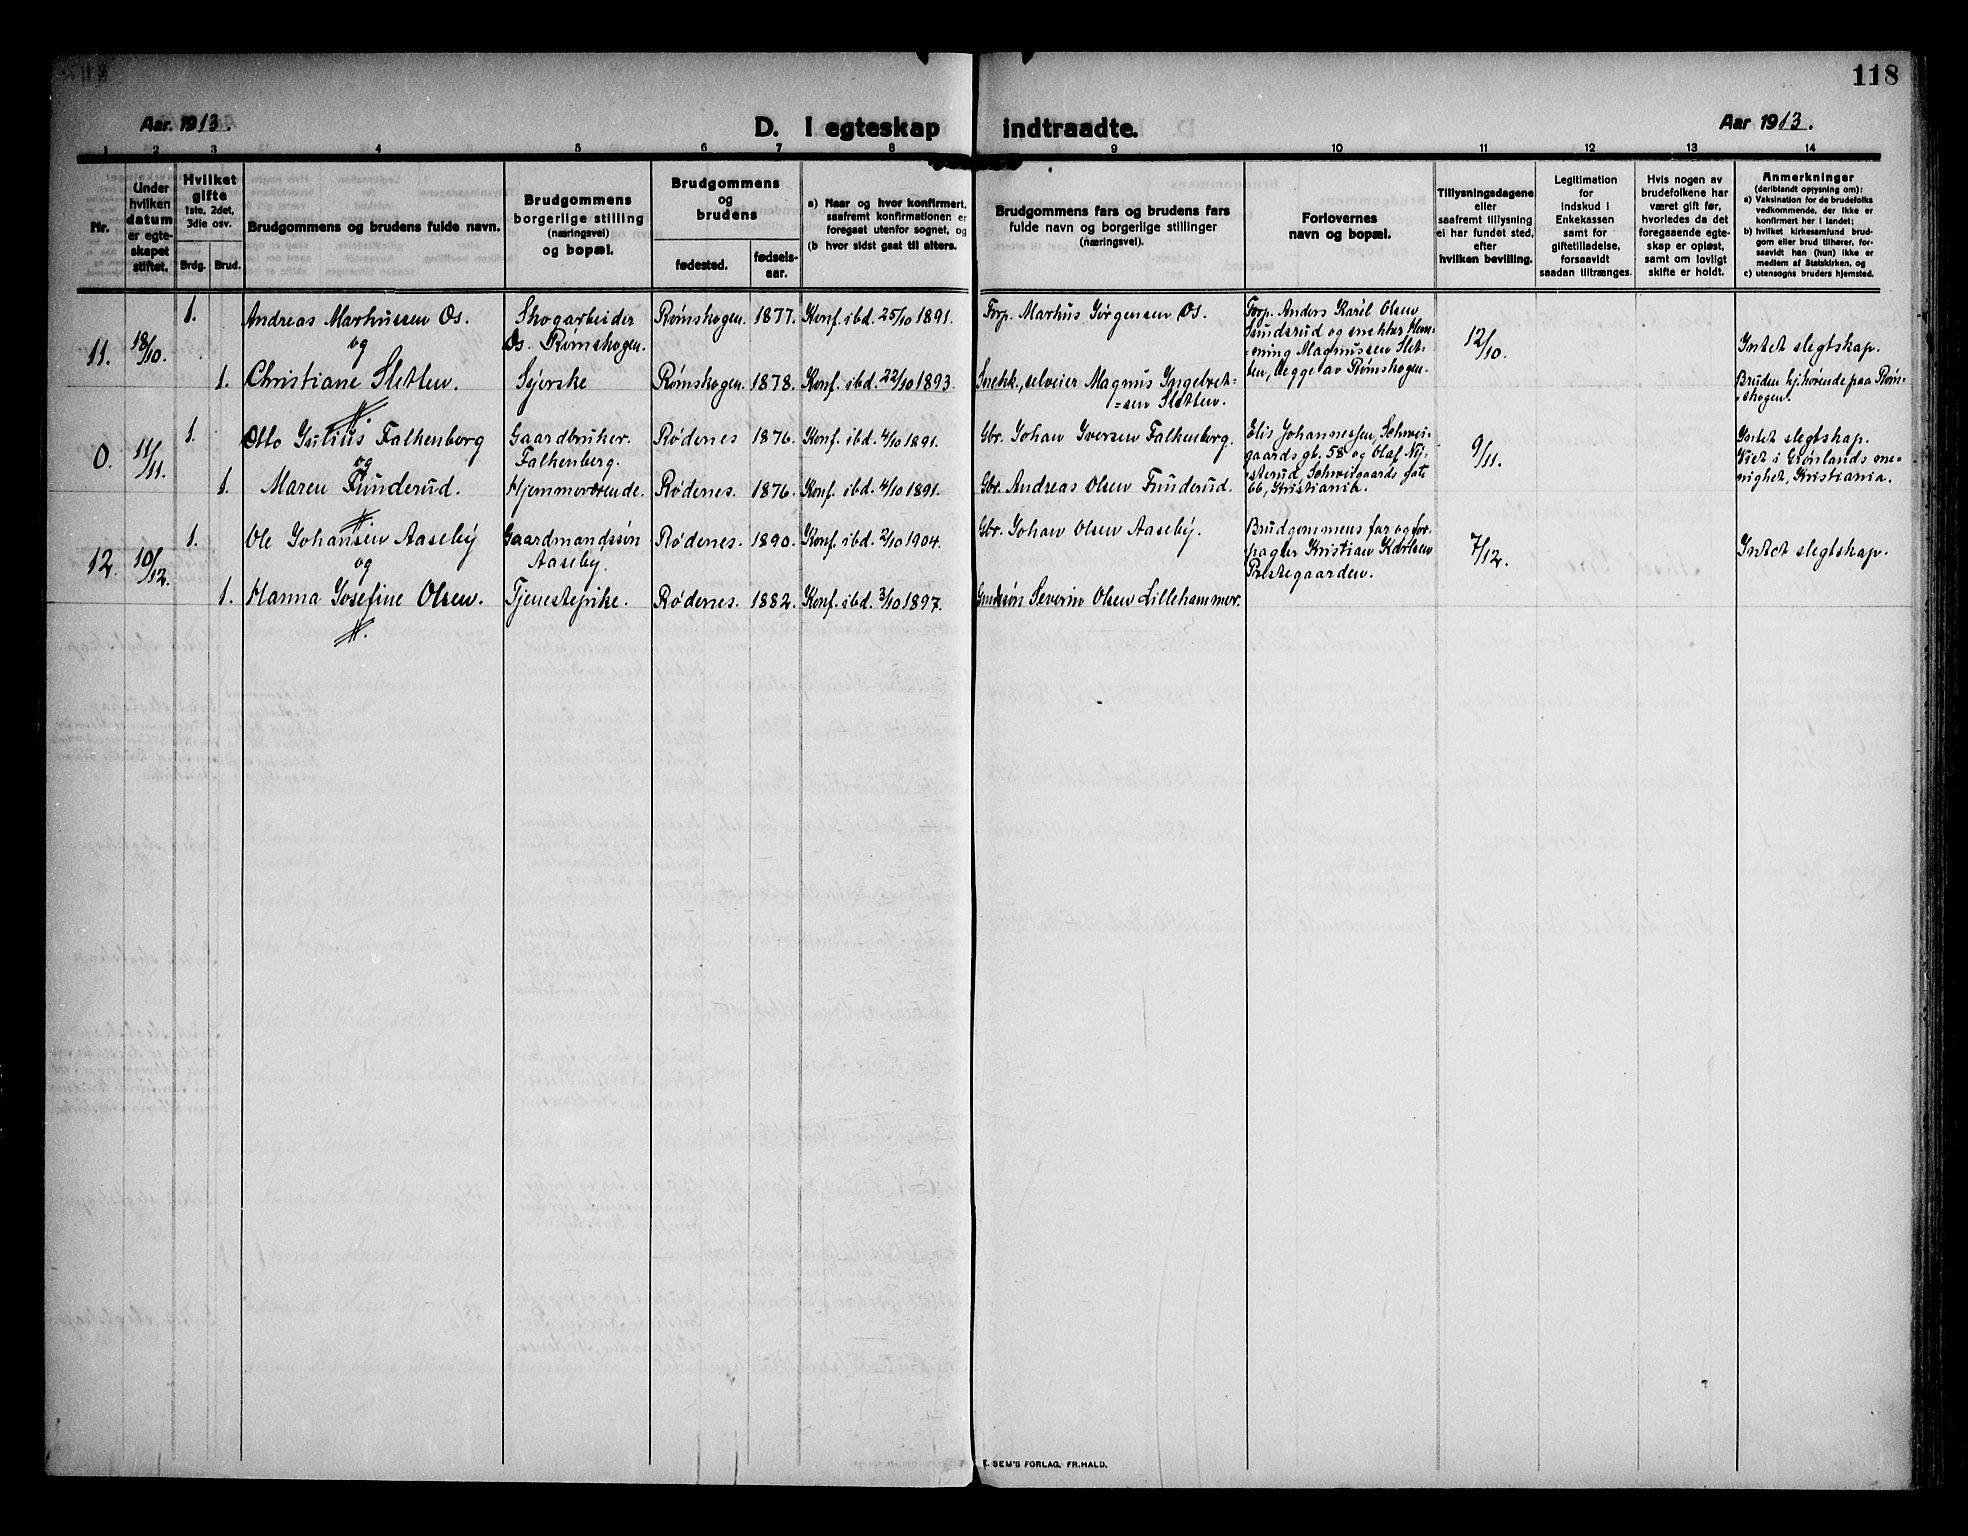 118
Aar. 1913.
D. I egteskap indtraadte.
Aar 1913.
1 2 3 4 5 6 7 8 9 10 11 12 13 14
Nr.
Under
hvilken
datum
er egte-
skapet
stiftet.
Hvilket
gifte
1ste, 2det,
3die osv.
Brdg. Brud.
Brudgommens og brudens fulde navn.
Brudgommens
borgerlige stilling
(næringsvei)
og bopæl.
Brudgommens
og
brudens
fødested.
fødsels-
aar.
a) Naar og hvor konfirmert,
saafremt konfirmationen er
foregaat utenfor sognet, og
(b hvor sidst gaat til alters.
Brudgommens fars og brudens fars
fulde navn og borgerlige stillinger
(næringsvei).
Forlovernes
navn og bopæl.
Tillysningsdagene
eller
saafremt tillysning
ei har fundet sted,
efter
hvilken bevilling.
Legitimation
for
indskud i
Enkekassen
samt for
giftetilladelse,
forsaavidt
saadan tiltrænges.
Hvis nogen av
brudefolkene har
været gift før,
hvorledes da det
foregaaende egte-
skap er opløst,
samt om lovligt
skifte er holdt.
Anmerkninger
(deriblandt oplysning om):
a) Vaksination for de brudefolks
vedkommende, der ikke er
konfirmert her i landet;
b) hvilket kirkesamfund brud-
gom eller brud tilhører, for-
saavidt han (hun) ikke er
medlem af Statskirken, og
c) utensogns bruders hjemsted.
11. 18/10.
1. Andreas Markussen Os.
og
1. Christiane Sletten.
Skogarbeider
Os. Rømskogen.
Syerske
Rømskogen. 1877. Konf. ibd. 25/10 1891.
Rømskogen. 1878. Konf. ibd. 22/10 1893.
Forp. Markus Jørgensen Os.
Snekk., selveier Magnus Ingebret=
=sen Sletten.
Forp. Anders Karél Olsen
Sundsrud og snekker Hen=
=ning Magnussen Slet=
ten, begge av Rømskogen.
12/10.
Intet slegtskap.
Bruden hjhørende paa Røm=
skogen.
0. 11/11.
1. Otto Julius Falkenborg
og
1. Maren Funderud.
Gaardbruker.
Falkenberg.
Hjemmeværende.
Rødenes 1876. Konf. ibd. 4/10 1891.
Rødenes. 1876. Konf. ibd. 4/10 1891.
Gbr. Johan Iversen Falkenborg.
Gbr. Andreas Olsen Funderud.
Elis Johannessen, Schwei=
gaards gt. 58 og Olaf Ny=
sterud, Schweigaards gate
66, Kristiania.
9/11.
Intet slegtskap.
Viet i Grønlands me=
nighet, Kristiania.
12. 10/12.
1. Ole Johansen Aaseby
og
1. Hanna Josefine Olsen.
Gaardmandssøn
Aaseby.
Tjenestepike.
Rødenes. 1890. Konf. ibd. 2/10 1904.
Rødenes. 1882. Konf. ibd. 3/10 1897.
Gbr. Johan Olsen Aaseby.
Severin Olsen Lillehammer.
Brudgommens far og for=
pagter Kristian Karlsen
Prestegaarden.
7/12.
Intet slegtskap.
E. SEM'S FORLAG, FR.HALD.